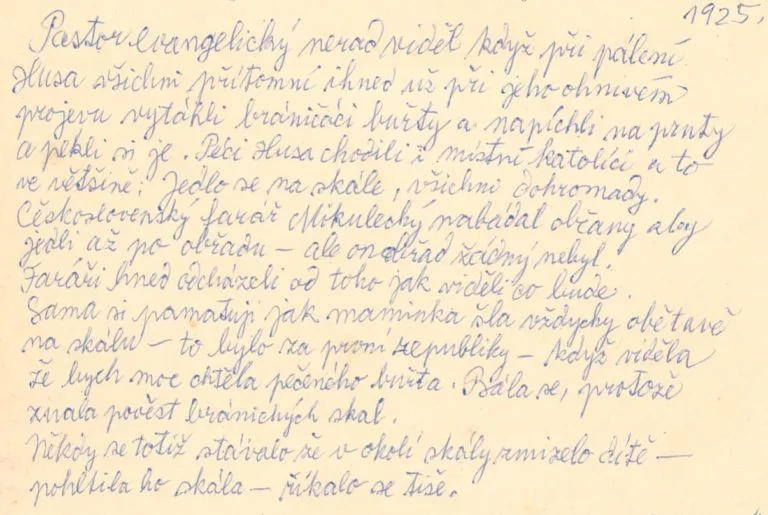 1925.
Pastor evangelický nerad viděl když při pálení
Husa všichni přítomní ihned už při jeho ohnivém
projevu vytáhli bráničáci buřty a napíchli na pruty
a pekli si je. Péci Husa chodili i místní katolíci a to
ve většině; Jedlo se na skále, všichni dohromady.
Československý farář Mikulecký nabádal občany aby
jedli až po obřadu – ale on obřad žádný nebyl.
Faráři hned odcházeli od toho jak viděli co bude.
Sama si pamatuji jak maminka šla vždycky obětavě
na skálu – to bylo za první republiky – když viděla
že bych moc chtěla pečeného buřta. Bála se, protože
znala pověst bránických skal.
Někdy se totiž stávalo že v okolí skály zmizelo dítě –
pohltila ho skála – říkalo se tiše.